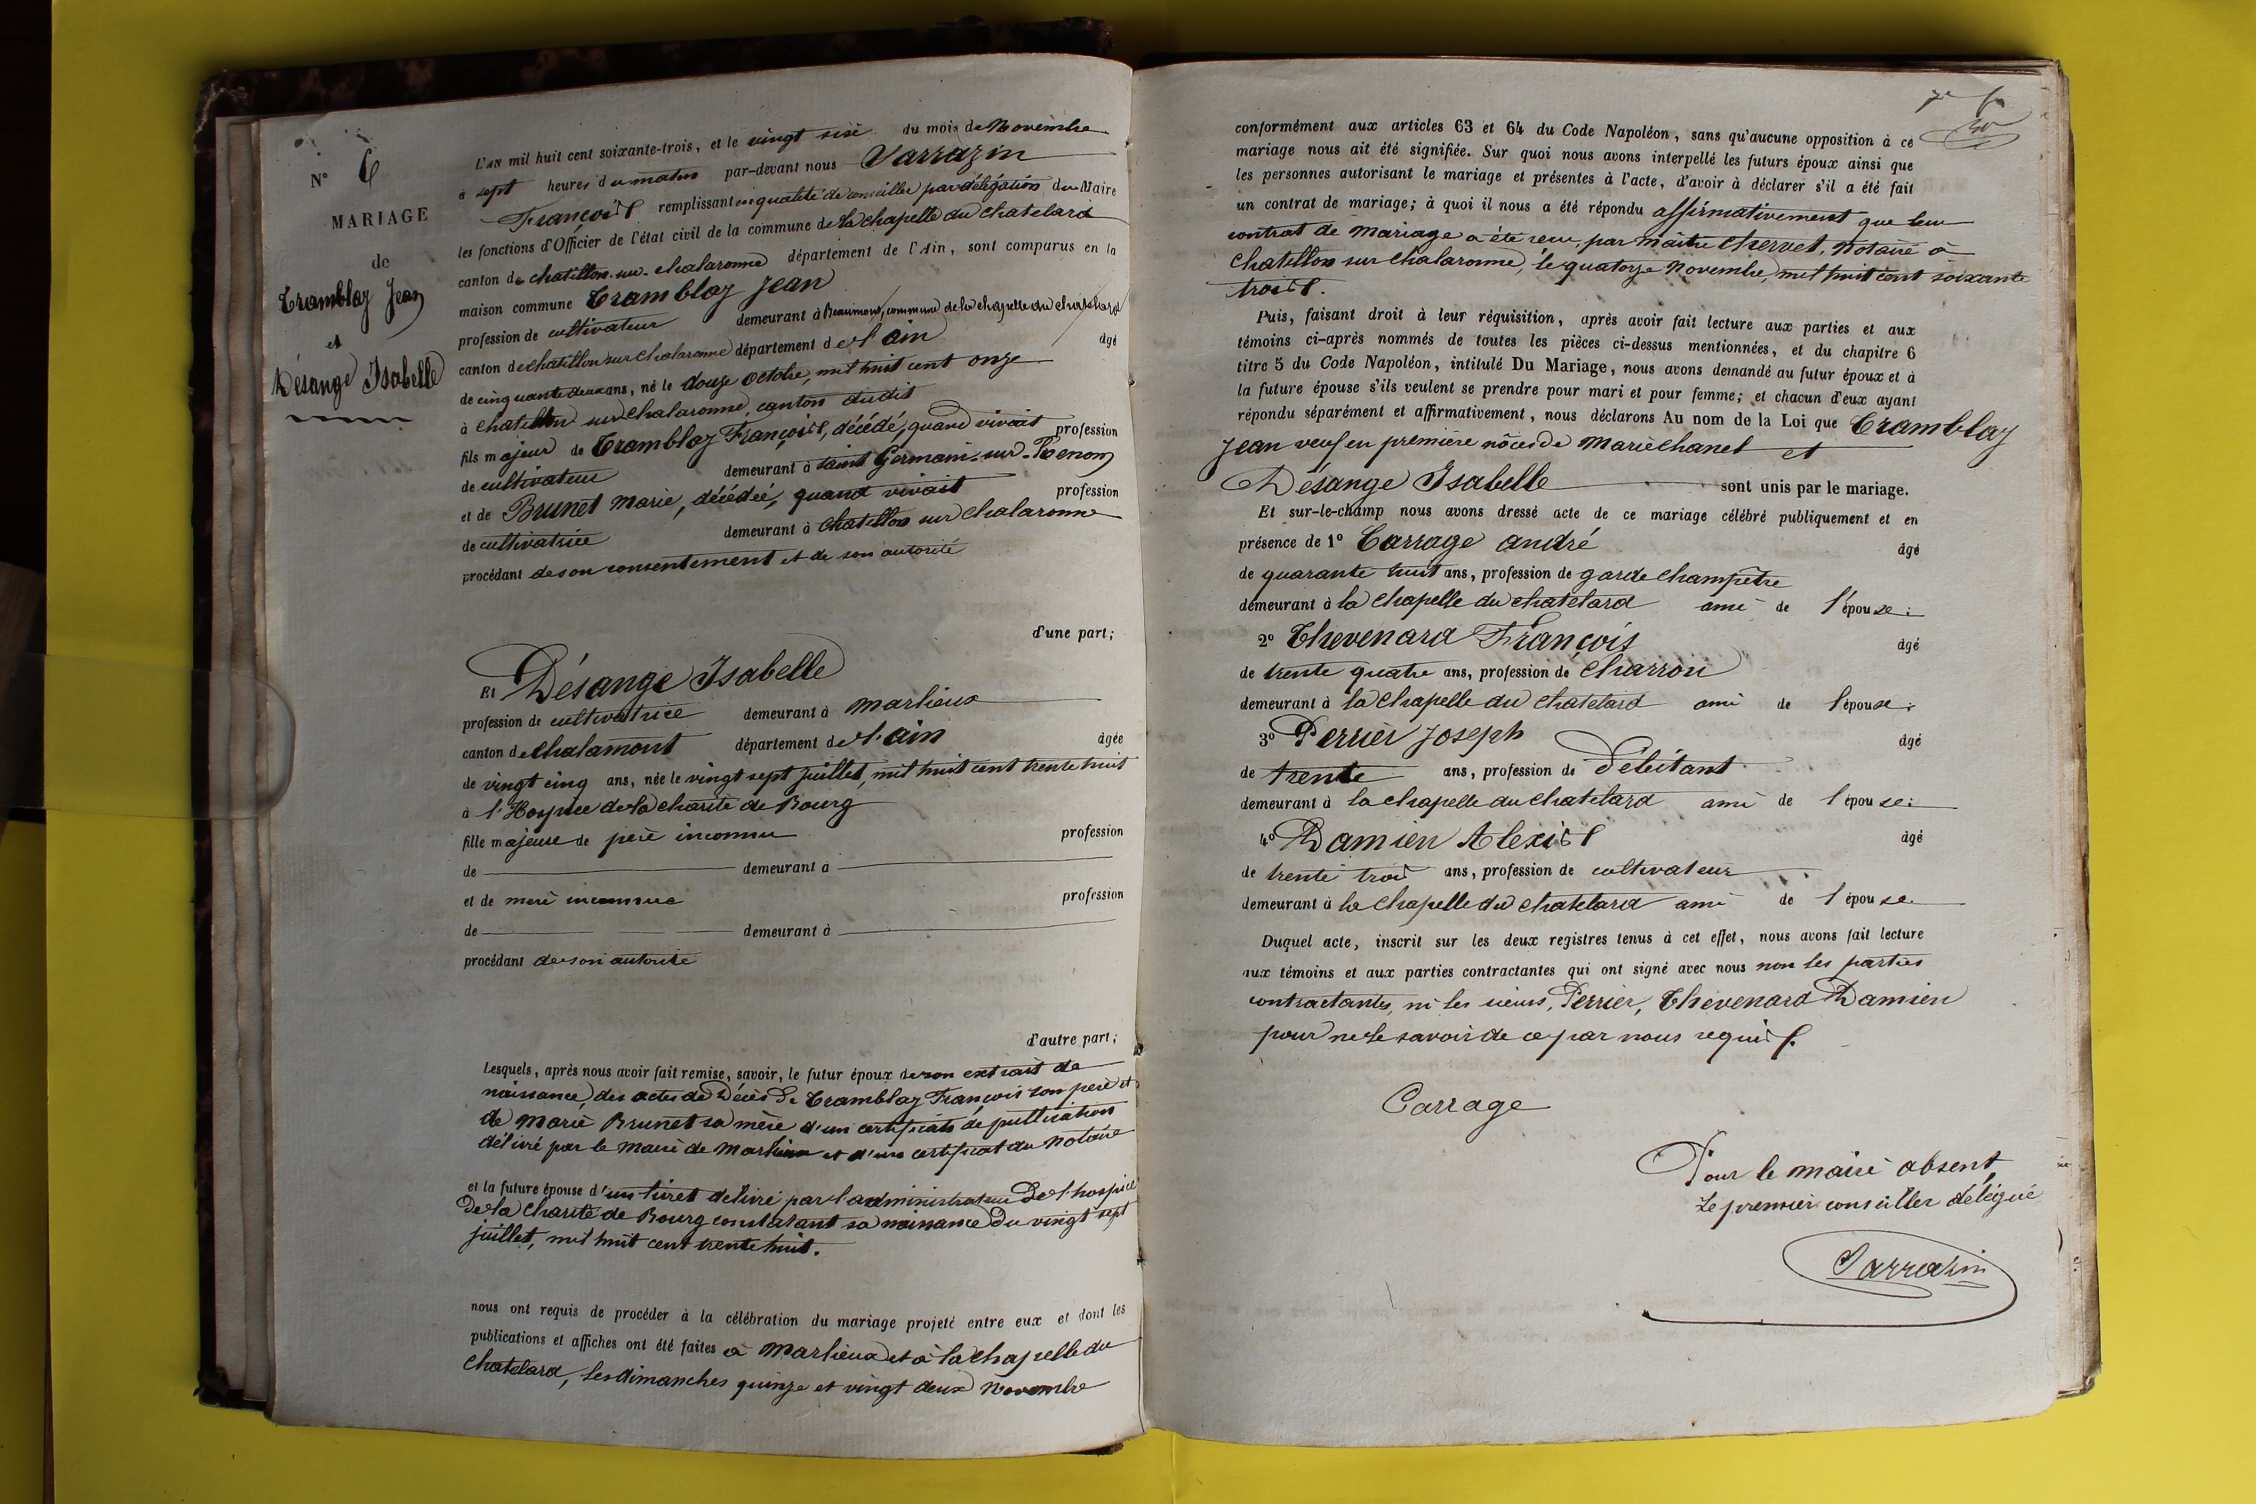 N° 6
MARIAGE
de
Tramblay Jean
et
Désange Isabelle
L'AN mil huit cent soixante-trois, et le vingt sixe du mois de Novembre
à sept heures du matin par-devant nous Sarrazin
François remplissant en qualité de conseiller par délégation du Maire
les fonctions d'Officier de l'état civil de la commune de la chapelle du chatelard
canton de chatillon-sur-chalaronne département de l'Ain, sont comparus en la
maison commune Tramblay Jean
profession de cultivateur demeurant à Beaumont, commune de la chapelle du chatelard
canton de chatillon sur chalaronne département de l'ain âgé
de cinquante deux ans, né le douze octobre, mil huit cent onze
à chatillon sur chalaronne, canton dudit
fils majeur de Tramblay François, décédé, quand vivait profession
de cultivateur demeurant à saint Germain-sur-Renom
et de Brunet Marie, décédée, quand vivait profession
de cultivatrice demeurant à chatillon sur chalaronne
procédant de son consentement et de son autorité
d'une part;
Et Désange Isabelle
profession de cultivatrice demeurant à Marlieux
canton de chalamont département de l'ain âgée
de vingt cinq ans, née le vingt sept juillet, mil huit cent trente huit
à l'Hospice de la charité de Bourg
fille majeure de père inconnu profession
de demeurant à
et de mère inconnue profession
de demeurant à
procédant de son autorité
d'autre part;
Lesquels, après nous avoir fait remise, savoir, le futur époux de son extrait de
naissance, des actes de Décès de Tramblay François son père et
de Marie Brunet sa mère d'un certificats de publication
délivré par le Maire de Marlieux et d'un certificat du Notaire
et la future épouse d'un livret délivré par l'administrateur De l'hospice
De la Charité de Bourg constatant sa naissance Du vingt sept
juillet, mil huit cent trente huit.
nous ont requis de procéder à la célébration du mariage projeté entre eux et dont les
publications et affiches ont été faites à Marlieux et à la chapelle du
Chatelard, les dimanches quinze et vingt deux Novembre
conformément aux articles 63 et 64 du Code Napoléon, sans qu'aucune opposition à ce
mariage nous ait été signifiée. Sur quoi nous avons interpellé les futurs époux ainsi que
les personnes autorisant le mariage et présentes à l'acte, d'avoir à déclarer s'il a été fait
un contrat de mariage; à quoi il nous a été répondu affirmativement que leur
contrat de Mariage a été recu, par Maître Chervet, Notaire à
Chatillon sur Chalaronne, le quatorze Novembre, mil huit cent soixante
trois.
Puis, faisant droit à leur réquisition, après avoir fait lecture aux parties et aux
témoins ci-après nommés de toutes les pièces ci-dessus mentionnées, et du chapitre 6
titre 5 du Code Napoléon, intitulé Du Mariage, nous avons demandé au futur époux et à
la future épouse s'ils veulent se prendre pour mari et pour femme; et chacun d'eux ayant
répondu séparément et affirmativement, nous déclarons Au nom de la Loi que Tramblay
Jean veuf en première nôces de Marie Chanel et
Désange Isabelle sont unis par le mariage.
Et sur-le-champ nous avons dressé acte de ce mariage célébré publiquement et en
présence de 1° Carrage André âgé
de quarante huit ans, profession de garde champêtre
demeurant à la chapelle du chatelard ami de l'épouse:
2° Thevenard François âgé
de trente quatre ans, profession de Charron
demeurant à la chapelle du chatelard ami de l'épouse:
3° Perrier Joseph âgé
de trente ans, profession de Débitant
demeurant à la chapelle du chatelard ami de l'épouse:
4° Damien Alexis âgé
de trente trois ans, profession de cultivateur
demeurant à la chapelle du chatelard ami de l'épouse.
Duquel acte, inscrit sur les deux registres tenus à cet effet, nous avons fait lecture
aux témoins et aux parties contractantes qui ont signé avec nous non les parties
contractantes, ni les sieurs, Perrier, Thévenard Damien
pour ne le savoir de ce par nous requis.
Carrage
Pour le maire absent
Le premier conseiller délégué
Sarrazin